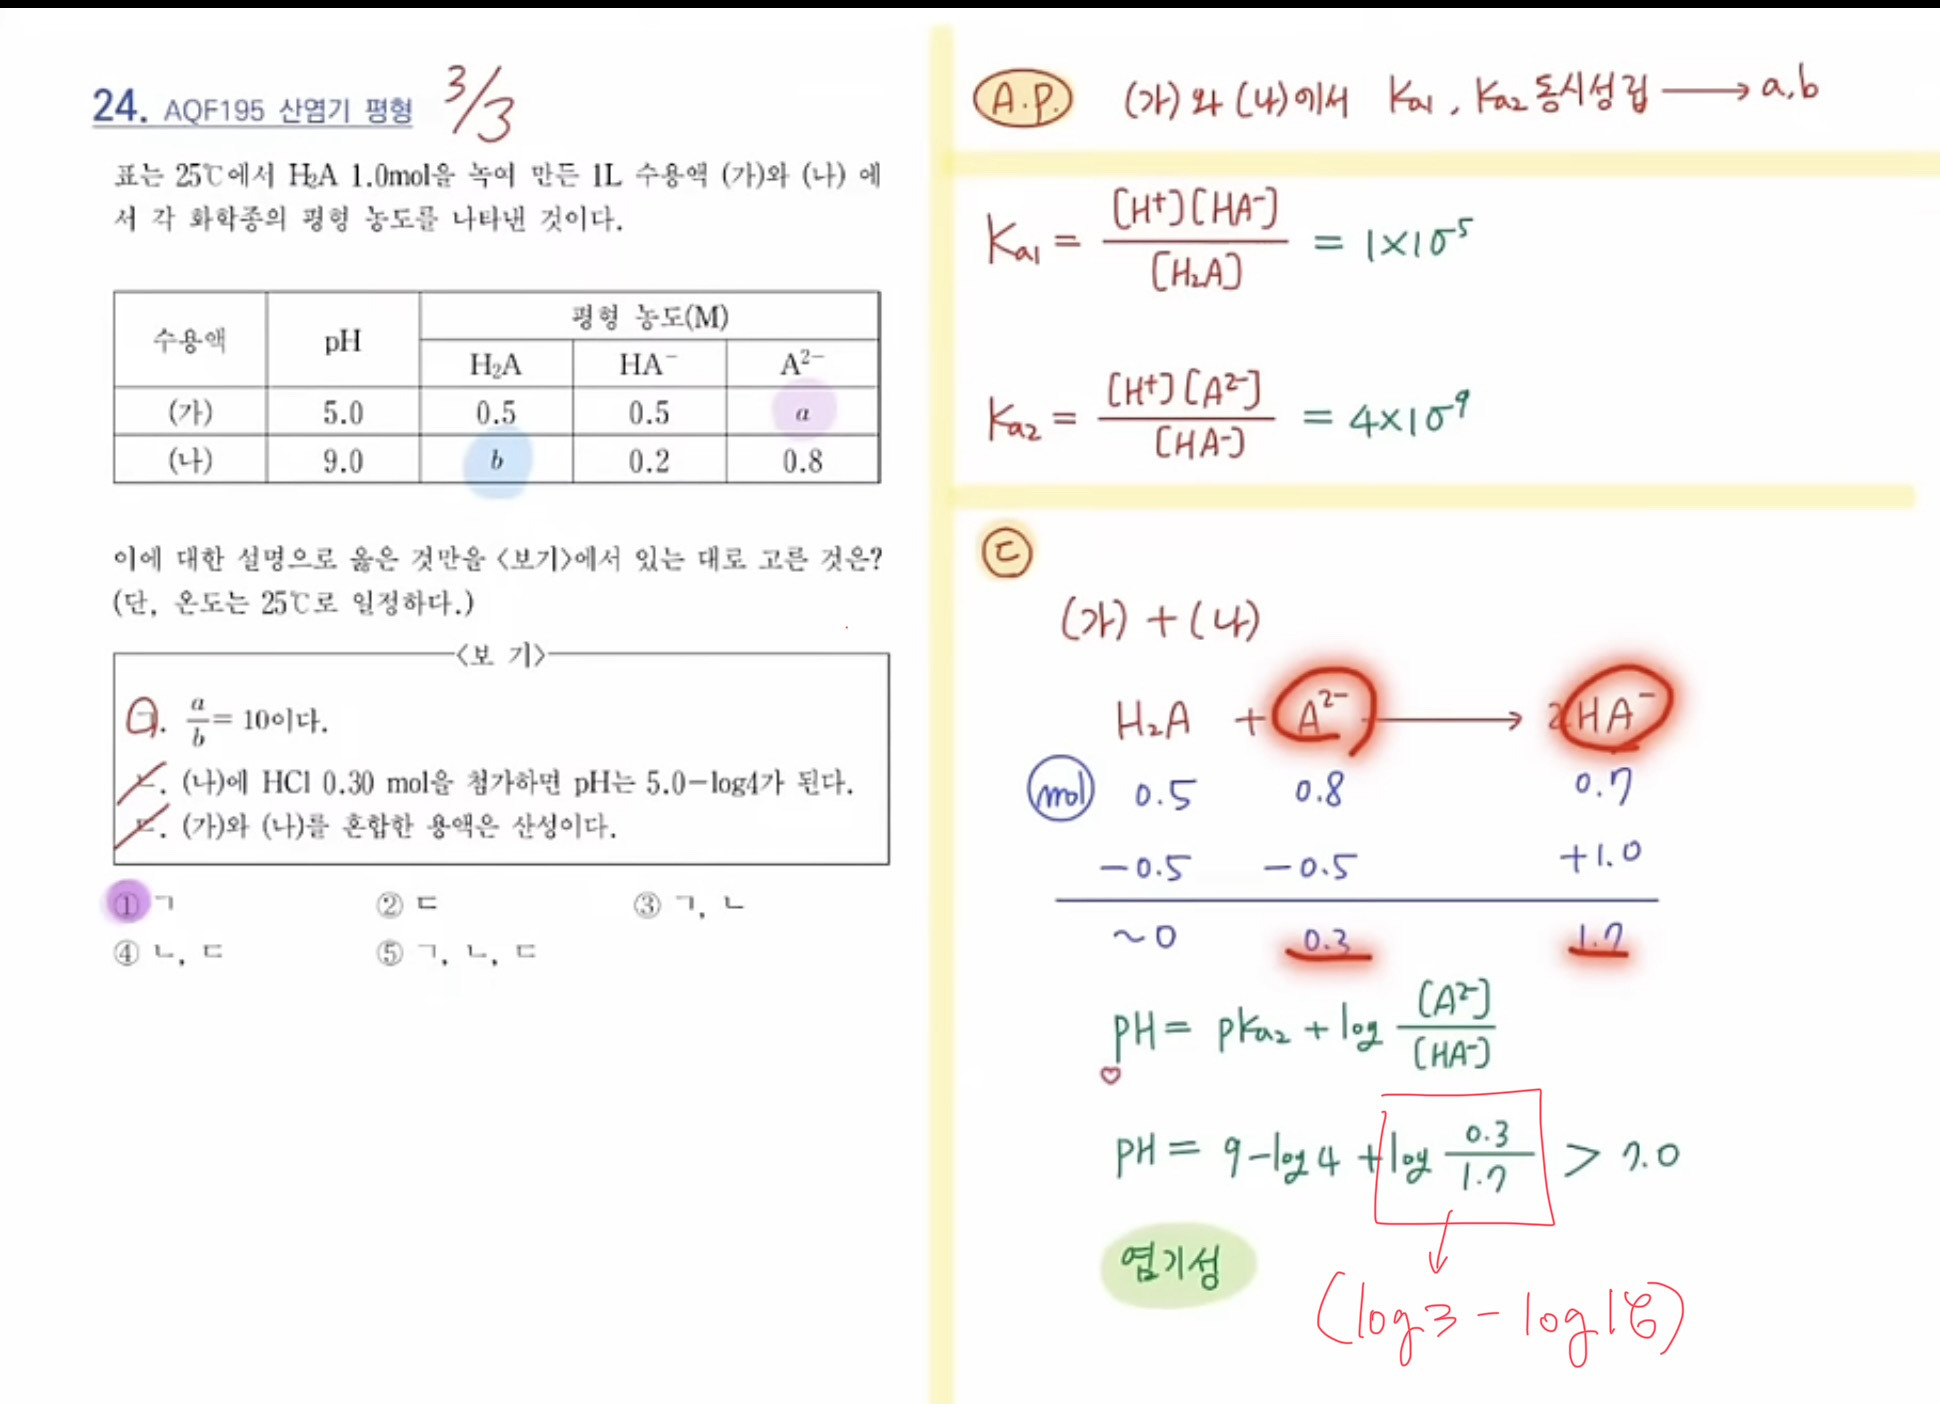 24. AQF195 산염기 평형 3/3
표는 25℃에서 H₂A 1.0mol을 녹여 만든 1L 수용액 (가)와 (나) 에
서 각 화학종의 평형 농도를 나타낸 것이다.
수용액 pH 평형 농도(M)
H₂A HA⁻ A²⁻
(가) 5.0 0.5 0.5 a
(나) 9.0 b 0.2 0.8
이에 대한 설명으로 옳은 것만을 <보기>에서 있는 대로 고른 것은?
(단, 온도는 25℃로 일정하다.)
<보 기>
ㄱ. a/b = 10이다.
ㄴ. (나)에 HCl 0.30 mol을 첨가하면 pH는 5.0-log4가 된다.
ㄷ. (가)와 (나)를 혼합한 용액은 산성이다.
① ㄱ ② ㄷ ③ ㄱ, ㄴ
④ ㄴ, ㄷ ⑤ ㄱ, ㄴ, ㄷ
A.P. (가)와 (나)에서 Ka1, Ka2 동시성립 → a,b
Ka1 = [H⁺][HA⁻]/[H₂A] = 1×10⁻⁵
Ka2 = [H⁺][A²⁻]/[HA⁻] = 4×10⁻⁹
ㄷ
(가) + (나)
H₂A + A²⁻ → 2HA⁻
mol 0.5 0.8 0.7
-0.5 -0.5 +1.0
~0 0.3 1.7
pH = pKa2 + log [A²⁻]/[HA⁻]
pH = 9-log4 + log 0.3/1.7 > 7.0
염기성
(log3 - log